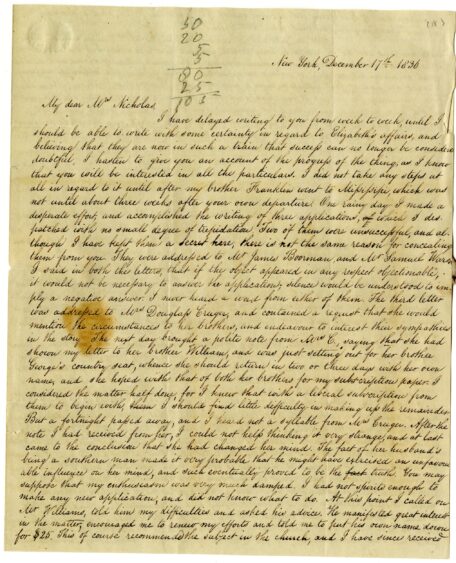 50
20
5
5
80
25
103
New York, December 17th 1836
My dear Mrs Nicholas,
I have delayed writing to you from week to week, until I
should be able to write with some certainty in regard to Elizabeth's affairs, and
believing that they are now in such a train that success can no longer be considered
doubtful, I hasten to give you an account of the progress of the thing, as I know
that you will be interested in all the particulars. I did not take any steps at
all in regard to it until after my brother Franklin went to Mississippi, which was
not until about three weeks after your own departure. One rainy day I made a
desperate effort, and accomplished the writing of three applications, of which I des-
patched with no small degree of trepidation. Two of them were unsuccessful, and al-
though I have kept them a secret here, there is not the same reason for concealing
them from you. They were addressed to Mr James Boorman, and Mr Samuel Ward.
I said in both the letters, that if the object appeared in any respect objectionable,
it would not be necessary to answer the application; silence would be understood to im-
ply a negative answer. I never heard a word from either of them. The third letter
was addressed to Mrs Douglass Cruger, and contained a request that she would
mention the circumstances to her brothers, and endeavour to interest their sympathies
in the story. The next day brought a polite note from Mrs C, saying that she had
shown my letter to her brother William, and was just setting out for her brother
George's country seat, whence she should return in two or three days with her own
name, and she hoped with that of both her brothers for my subscription paper. I
considered the matter half done, for I knew that with a liberal subscription from
them to begin with, I should find little difficulty in making up the remainder.
But a fortnight passed away, and I heard not a syllable from Mrs Cruger. After the
note I had received from her, I could not help thinking it very strange, and at last
came to the conclusion that she had changed her mind. The fact of her husband's
being a southern man made it very probable that he might have exercised an unfavour-
able influence on her mind, and such eventually proved to be the fact truth. You may
suppose that my enthusiasm was very much damped. I had not spirits enough to
make any new application, and did not know what to do. At this point I called on
Mr Williams, told him my difficulties and asked his advice. He manifested great interest
in the matter, encouraged me to renew my efforts and told me to put his own name down
for $25. This of course recommends the subject in the church, and I have since received